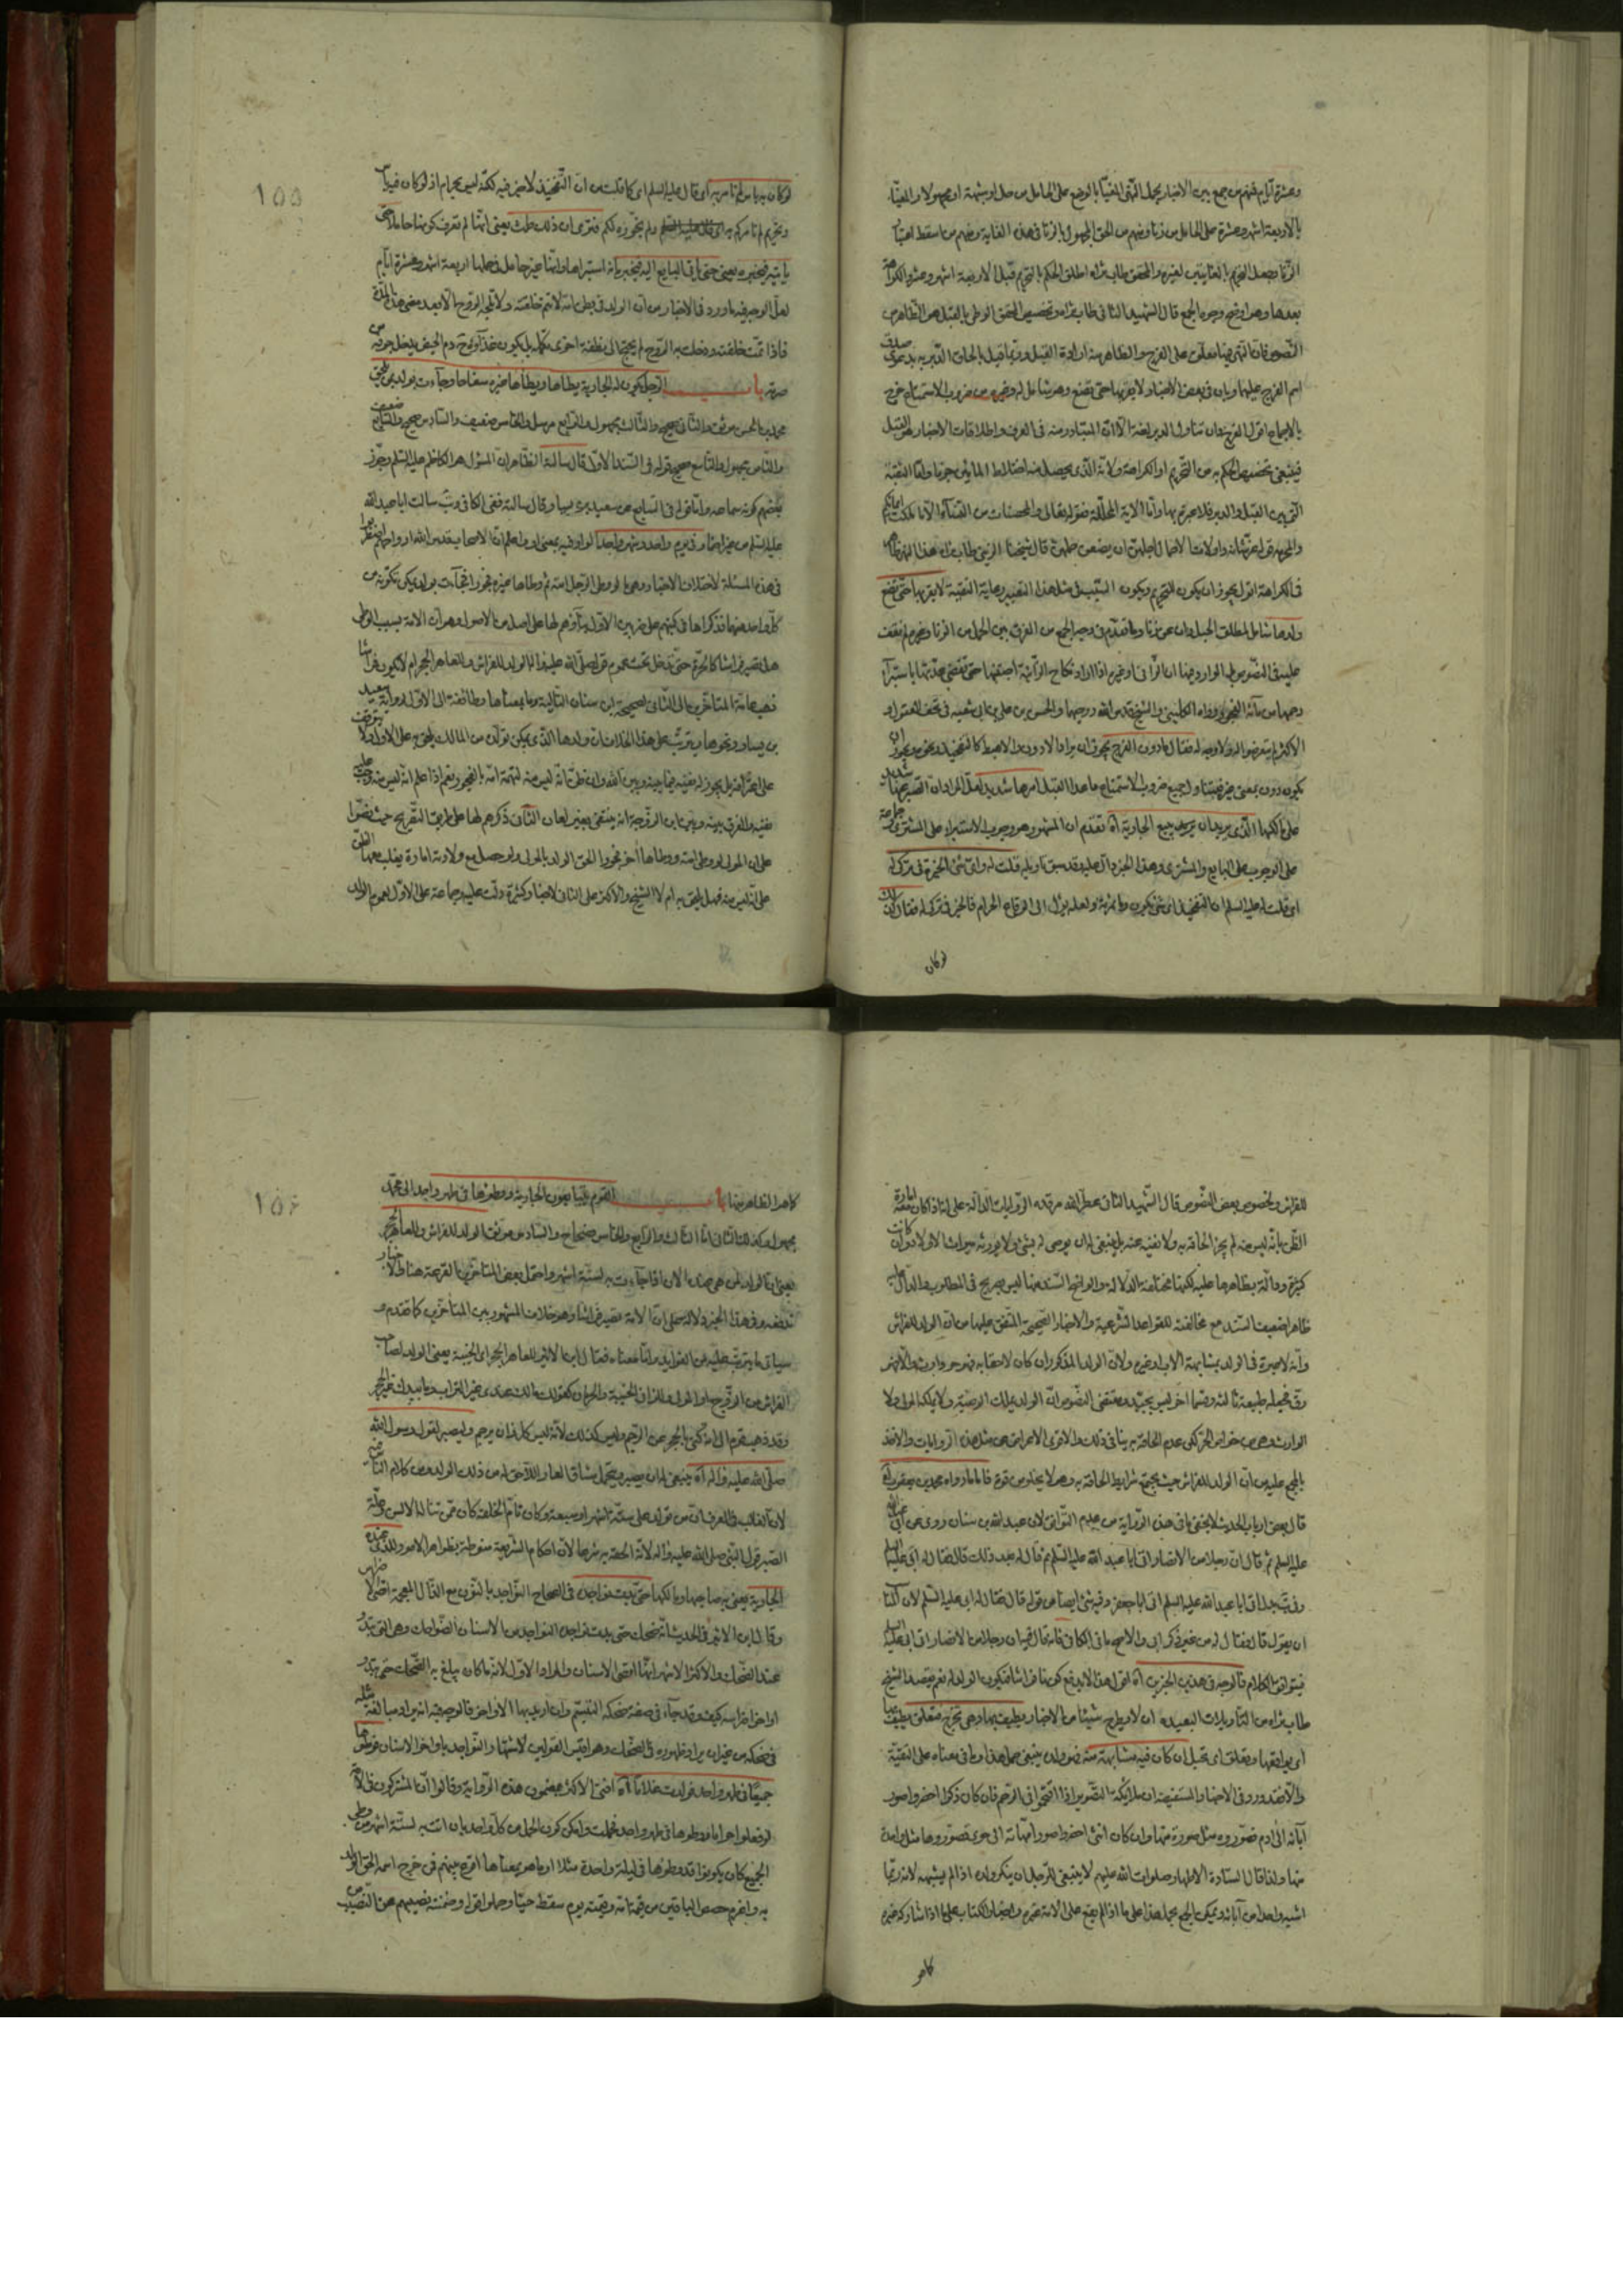 وعشرة ايام فمنهم من جمع بين الاخبار بحمل النهى المغيا بالوضع على الحامل من حل او شبهة او مجهولا والمغيا
بالاربعة اشهر وعشرة على الحامل من زنا ومنهم من الحق المجهول بالزنا فى هذه الغاية ومنهم من اسقط اعتبار
الزنا وجعل التحريم بالغايتين لغيره والمحقق طاب ثراه اطلق الحكم بالتحريم قبل الاربعة اشهر وعشر والكراهة
بعدها وهو اوضح وجوه الجمع قال الشهيد الثانى طاب ثراه وتخصيص المحقق الوطى بالقبل هو الظاهر من
النصوص فان النهى فيها معلق على الفرج والظاهر منه ارادة القبل وربما قيل بالحاق الدبر به بدعوى صدق
اسم الفرج عليهما وبان فى بعض الاخبار ولا يقربها حتى تضع وهو شامل له وغيره من ضروب الاستمتاع خرج
بالاجماع اقول الفرج وان تناول الدبر لغة الا ان المتبادر منه فى العرف واطلاقات الاخبار هو القبل
فينبغى تخصيص الحكم به من التحريم او الكراهة ولانه الذى يحصل منه اختلاط المائين
بين القبل والدبر فلا عبرة بها واما الاية المحللة فقوله تعالى والمحصنات من النساء الا ما ملكت ايمانكم
والمحرمة قوله عز شانه واولات الاحمال اجلهن ان يضعن حملهن قال شيخنا طاب ثراه هذا الخبر ظاهر
فى الكراهة اقول يجوز ان يكون للتحريم ويكون السبب فى مثل هذا التعبير رعاية التقية لا يقربها حتى تضع
ولدها شامل لمطلق الحبل وان عن زنا وما تقدم فى وجه الجمع من الفرق بين الحمل من الزنا وغيره لم نقف
عليه فى النصوص
الاكثر لم يتعرضوا له ولا وجه له فقال ما دون الفرج يجوز ان يراد الادون والاهبط كالتفخيذ ونحوه ويجوز ان
يكون دون بمعنى غير فيتناول جميع ضروب الاستمتاع ما عدا القبل امرها شديد لعل المراد ان التحريم هنا شديد
على مالكها الذى يريد ان يبيع الجارية اه تقدم ان المشهور هو وجوب الاستبراء على المشترى
على الوجوب على البايع والمشترى وهذا الخبر دال عليه وقد سبق تاويله قلت له واى شئ الخيرة فى تركى له
اى قلت له عليه السلم ان التفخيذ اى شئ يكون ولعله يؤل الى ايقاع الحرام فالخير فى تركه فقال ذلك
لوكان
لوكان به باس لم نامر به اى قال عليه السلم اى كما قلت من ان التفخيذ لا خير فيه لكنه ليس بحرام اذ لو كان فيه باس
وتحريم لم نامركم به ولم نجوزه لكم فترى ان ذلك طمث يعنى انها لم تعرف كونها حاملا حتى
ياتيه فيخبره يعنى حتى ياتى البايع اليه فيخبره بانه استبراها وانها غير حامل اربعة اشهر وعشرة ايام
لعل الوجه فيه ما ورد فى الاخبار من ان الولد فى بطن امه لا تتم خلقته ولا تلجه الروح الا بعد مضى هذه المدة
فاذا تمت خلقته ودخلت به الروح لم يحتج الى نطفة اخرى تكمله بل يكون غذاؤه من دم الحيض يدخل جوفه من
سرته باب الرجل يكون له الجارية يطاها ويطاها غيره سفاحا وجاءت بولد بمن يلحق
محمد بن الحسن موثق والثانى صحيح والثالث مجهول والرابع مرسل والخامس ضعيف والسادس صحيح والسابع ضعيف
والثامن مجهول والتاسع صحيح قوله فى السند الاول قال سالته الظاهر ان المسؤل هو الكاظم عليه السلم وجوز
بعضهم كونه سماعه واما قوله فى السابع عن سعيد بن يسار وقال سالته ففى الكافى ويب سالت ابا عبد الله
عليه السلم من غير اضمار فى يوم واحد وشهر واحد لو او فيه بمعنى او واعلم ان الاصحاب قدس الله ارواحهم اضطربوا
فى هذه المسئلة لاختلاف الاخبار وهى ما لو وطئ الرجل امته ثم وطاها غيره فجورا فجاءت بولد يمكن تكونه من
كل واحد منهما فذكراها فى كتبهم على ضربين الاول بناؤهم لها على اصل من الاصول وهو ان الامة بسبب الوطى
هل تصير فراشا كالحرة حتى تدخل تحت عموم قوله صلى الله عليه واله الولد للفراش وللعاهر الحجر ام لا يكون فراشا
فذهب عامة المتاخرين الى الثانى لصحيحة ابن سنان التالية وما بمعناها وطائفة الى الاول لرواية سعيد
بن يسار ونحوها ويترتب على هذا الخلاف ان ولدها الذى يمكن تولده من المالك يلحق به على الاول ولا يتوقف
على اعترافه بل يجوز له نفيه فيما بينه وبين الله وان ظن انه ليس منه لتهمة امه بالفجور نعم اذا علم انه ليس منه وجب عليه
نفيه والفرق بينه وبين ابن الزوجة انه ينتفى بغير لعان الثانى ذكرهم لها على طريق التفريع حيث نصوا
على ان المولى لو وطئ امته ووطاها اخر فجورا الحق الولد بالمولى ولو حصل مع ولادته امارة يغلب معها الظن
على انه ليس منه فهل يلحق به ام لا الشيخ والاكثر على الثانى لاخبار كثيرة دلت عليه وجماعة على الاول لعموم الولد
155
للفراش ولخصوص بعض النصوص قال الشهيد الثانى عطر الله مرقده الروايات الدالة على انه اذا كان معه امارة
الظن بانه ليس منه لم يجز الحاقه به ولا نفيه عنه بل ينبغى له ان يوصى له بشئ ولا يورثه ميراث الاولاد وان كانت
كثيرة ودالة بظاهرها عليه لكنها مختلفة الدلالة والواضح السند منها ليس بصريح فى المطلوب والدال عليه
ظاهرا ضعيف السند مع مخالفته للقواعد الشرعية والاخبار الصحيحة المتفق عليها من ان الولد للفراش
وانه لا عبرة فى الولد بمشابهة الاب او غيره ولان الولد المذكور ان كان لاحقا به فهو حر وارث والا فهو
رق فجعله طبقة ثالثة وقسما اخر ليس بجيد ومقتضى النصوص ان الولد يملك الوصية ولا يملكه المولى ولا
الوارث وهى من خواص الحر لكن عدم الحاقه به ينافى ذلك والاقوى الاعراض عن مثل هذه الروايات والاخذ
بالمجمع عليه من ان الولد للفراش حيث يجتمع شرايط الحاقه به وهو لا يخلو من قوة فاما ما رواه محمد بن يعقوب اه
قال بعض ارباب الحديث لا يخفى ما فى هذه الرواية من عدم التوافق لان عبد الله بن سنان روى عن ابى عبد الله
عليه السلم ثم قال ان رجلا من الانصار اتى ابا عبد الله عليه السلم ثم قال له بعد ذلك قال فقال له ابى عليه السلم
وفى نسخة اتى ابا عبد الله عليه السلم اتى ابا جعفر وفيه شئ ايضا من قوله قال فقال له ابى عليه السلم لان
ان يقول قال فقال له من غير ذكر ابى والاصح ما فى الكافى فانه قال فيه ان رجلا من الانصار اتى ابى عليه السلم
فيتوافق الكلام فالوجه فى هذين الخبرين اه اقول هذا لا يدفع كونها فراشا فيكون الولد له نعم يقصد الشيخ
طاب ثراه من التاويلات البعيدة ان لا يطرح شيئا من الاخبار ويطيف بها وهى تخرج فتعلق يطيف بها
اى يوافقها ويعلق اى تحبل ان كان فيه مشابهة منه ينبغى حمل هذا وما فى معناه على التقية
والا فقد ورد فى الاخبار المستفيضة ان ملائكة التصوير اذا اقتحموا فى الرحم فان كان ذكرا احضروا صور
آبائه الى ادم فصوروه مثل صورة منها وان كان انثى احضروا صور امهاته الى حوى فصوروها مثل واحدة
منها ولذا قال السادة الاطهار صلوات الله عليهم لا ينبغى للرجل ان ينكر ولده اذا لم يشبهه لانه ربما
اشبه واحدا من آبائه ويمكن الجمع بحمل هذا على ما اذا لم يقع على الامة غيره واخبار الكتاب على ما اذا شاركه غيره
كما هو
كما هو الظاهر منها باب القوم يتبايعون الجارية فوطؤها فى طهر واحد الى محمد
مجهول وكذلك الثانى اما الثالث والرابع والخامس صحاح والسادس موثق الولد للفراش وللعاهر الحجر
يعنى ان الولد لمن هى عنده الان اذا جاءت به لستة اشهر واحتمل بعض المتاخرين القرعة هنا والاخبار
تدفعه وفى هذا الخبر دلالة على ان الامة تصير فراشا وهو خلاف المشهور بين المتاخرين كما تقدم و
سياتى ما يترتب عليه من الفوايد واما معناه فقال ابن الاثير للعاهر الحجر اى الخيبة يعنى الولد لصاحب
الفراش من الزوج او المولى وللزانى الخيبة والحرمان كقولك مالك عندى غير التراب وما بيدك غير الحجر
وقد ذهب قوم الى انه كنى بالحجر عن الرجم وليس كذلك لانه ليس كل زان يرجم وليصبر لقول رسول الله
صلى الله عليه واله اه ينبغى له ان يصبر ويتحمل مشاق العار اللاحق له من ذلك الولد من كلام الناس
لان الغالب فى العرف ان من تولد على ستة اشهر او سبعة وكان تام الخلقة كان ممن تناله الالسن وعلة
الصبر قول النبى صلى الله عليه واله لانه الحقه به شرعا لان احكام الشريعة منوطة بظواهر الامور وللذى عنده
الجارية يعنى به صاحبها ومالكها حتى بدت نواجذه فى الصحاح النواجذ بالنون مع الذال المعجمة اقصى الاضراس
وقال ابن الاثير فى الحديث انه ضحك حتى بدت نواجذه النواجذ من الاسنان الضواحك وهى التى تبدو
عند الضحك والاكثر الاشهر انها اقصى الاسنان والمراد الاول لانه ما كان يبلغ به الضحك حتى تبدو
اواخر اضراسه كيف وقد جاء فى صفة ضحكه التبسم وان اريد بها الاواخر فالوجه فيه انه يراد مبالغة مثله
فى ضحكه من غير ان يراد ظهوره فى الضحك وهو اقيس القولين لاشتهار النواجذ باواخر الاسنان فوطؤها
جميعا فى طهر واحد فولدت غلاما اه افتى الاكثر بمضمون هذه الرواية وقالوا ان المشتركين فى الامة
لو فعلوا حراما فوطؤها فى طهر واحد فحملت وامكن كون الحمل من كل واحد بان اتت به لستة اشهر من وطى
الجميع كان يكونوا قد وطؤها فى ليلة واحدة مثلا او ما هو بمعناها اقرع بينهم فمن خرج اسمه الحق الولد
به واغرم حصص الباقين من قيمة امه وقيمته يوم سقط حيا
156